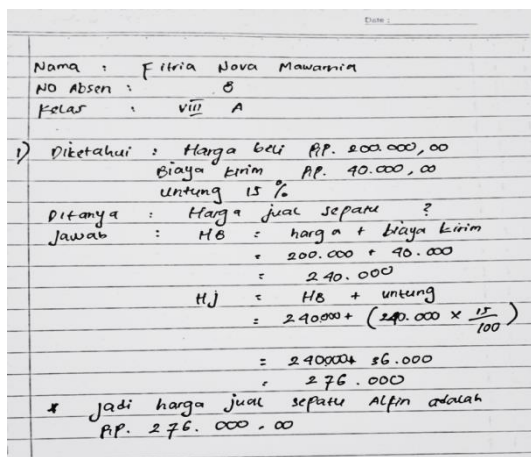 Date :
Nama : Fitria Nova Mawarnia
NO Absen : 8
Kelas : VIII A
1) Diketahui : Harga beli Rp. 200.000,00
Biaya kirim Rp. 40.000,00
untung 15 %
Ditanya : Harga jual sepatu ?
Jawab : HB = harga + biaya kirim
= 200.000 + 40.000
= 240.000
HJ = HB + untung
= 240.000 + (240.000 × 15/100)
= 240.000 + 36.000
= 276.000
* Jadi harga jual sepatu Alfin adalah
Rp. 276.000,00